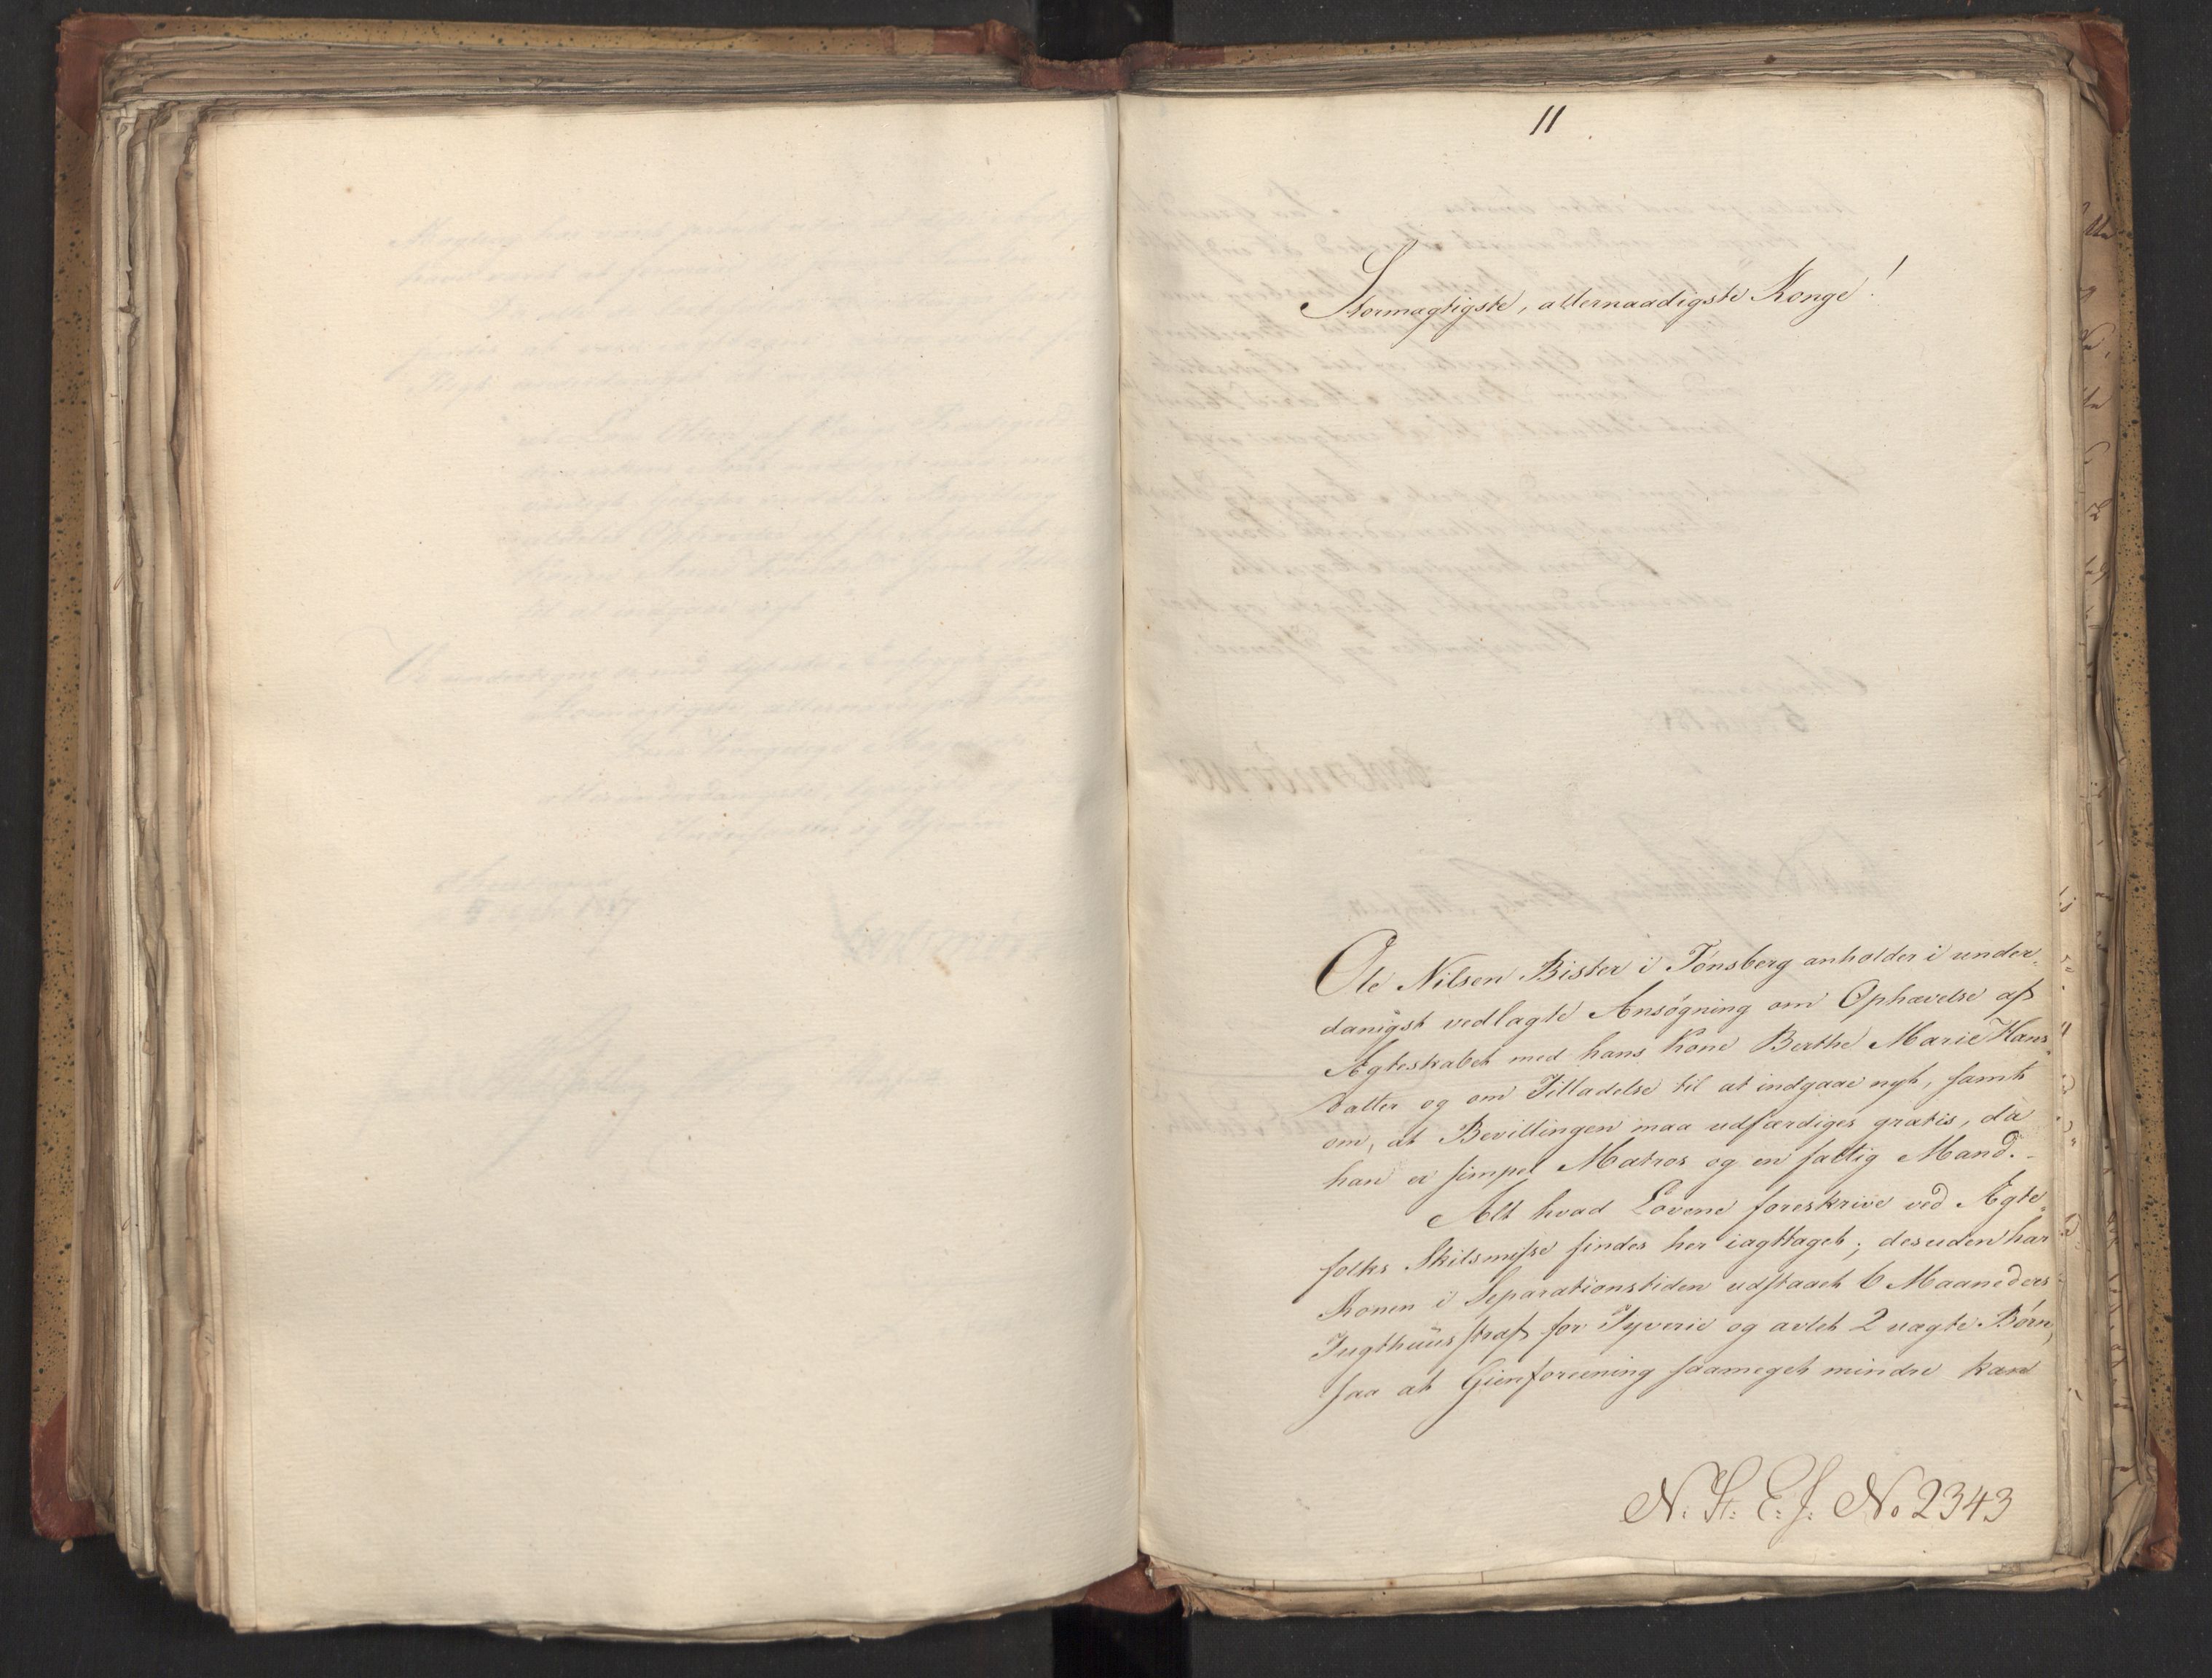 11
Stormægtigste, allernaadigste Konge!
Ole Nilsen Bister i Tønsberg anholder i under-
danigst vedlagte Ansøgning om Ophævelse af
Ægteskabet med hans Kone Berthe Marie Hans-
datter og om Tilladelse til at indgaae nyt, samt
om, at Bevillingen maa udfærdiges gratis, da
han er simpel Matros og en fattig Mand.-
Alt hvad Lovene foreskrive ved Ægte-
folks Skilsmisse findes her iagttaget; desuden har
Konen i Separationstiden udstaaet 6 Maaneders
Tugthuusstraf for Tyverie og avlet 2 uægte Børn,
saa at Gienforeening saameget mindre kan
N. St. E. J. No 2343